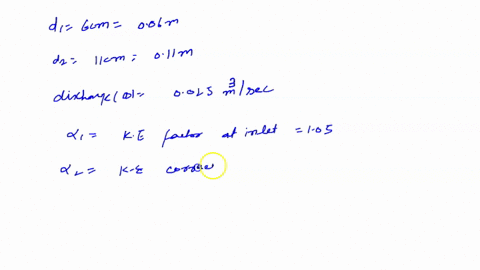 d1 = 6cm = 0.06m
d2 = 11cm = 0.11m
discharge(Q) = 0.025 m³/sec
α1 = K.E factor at inlet = 1.05
α2 = K-E corre